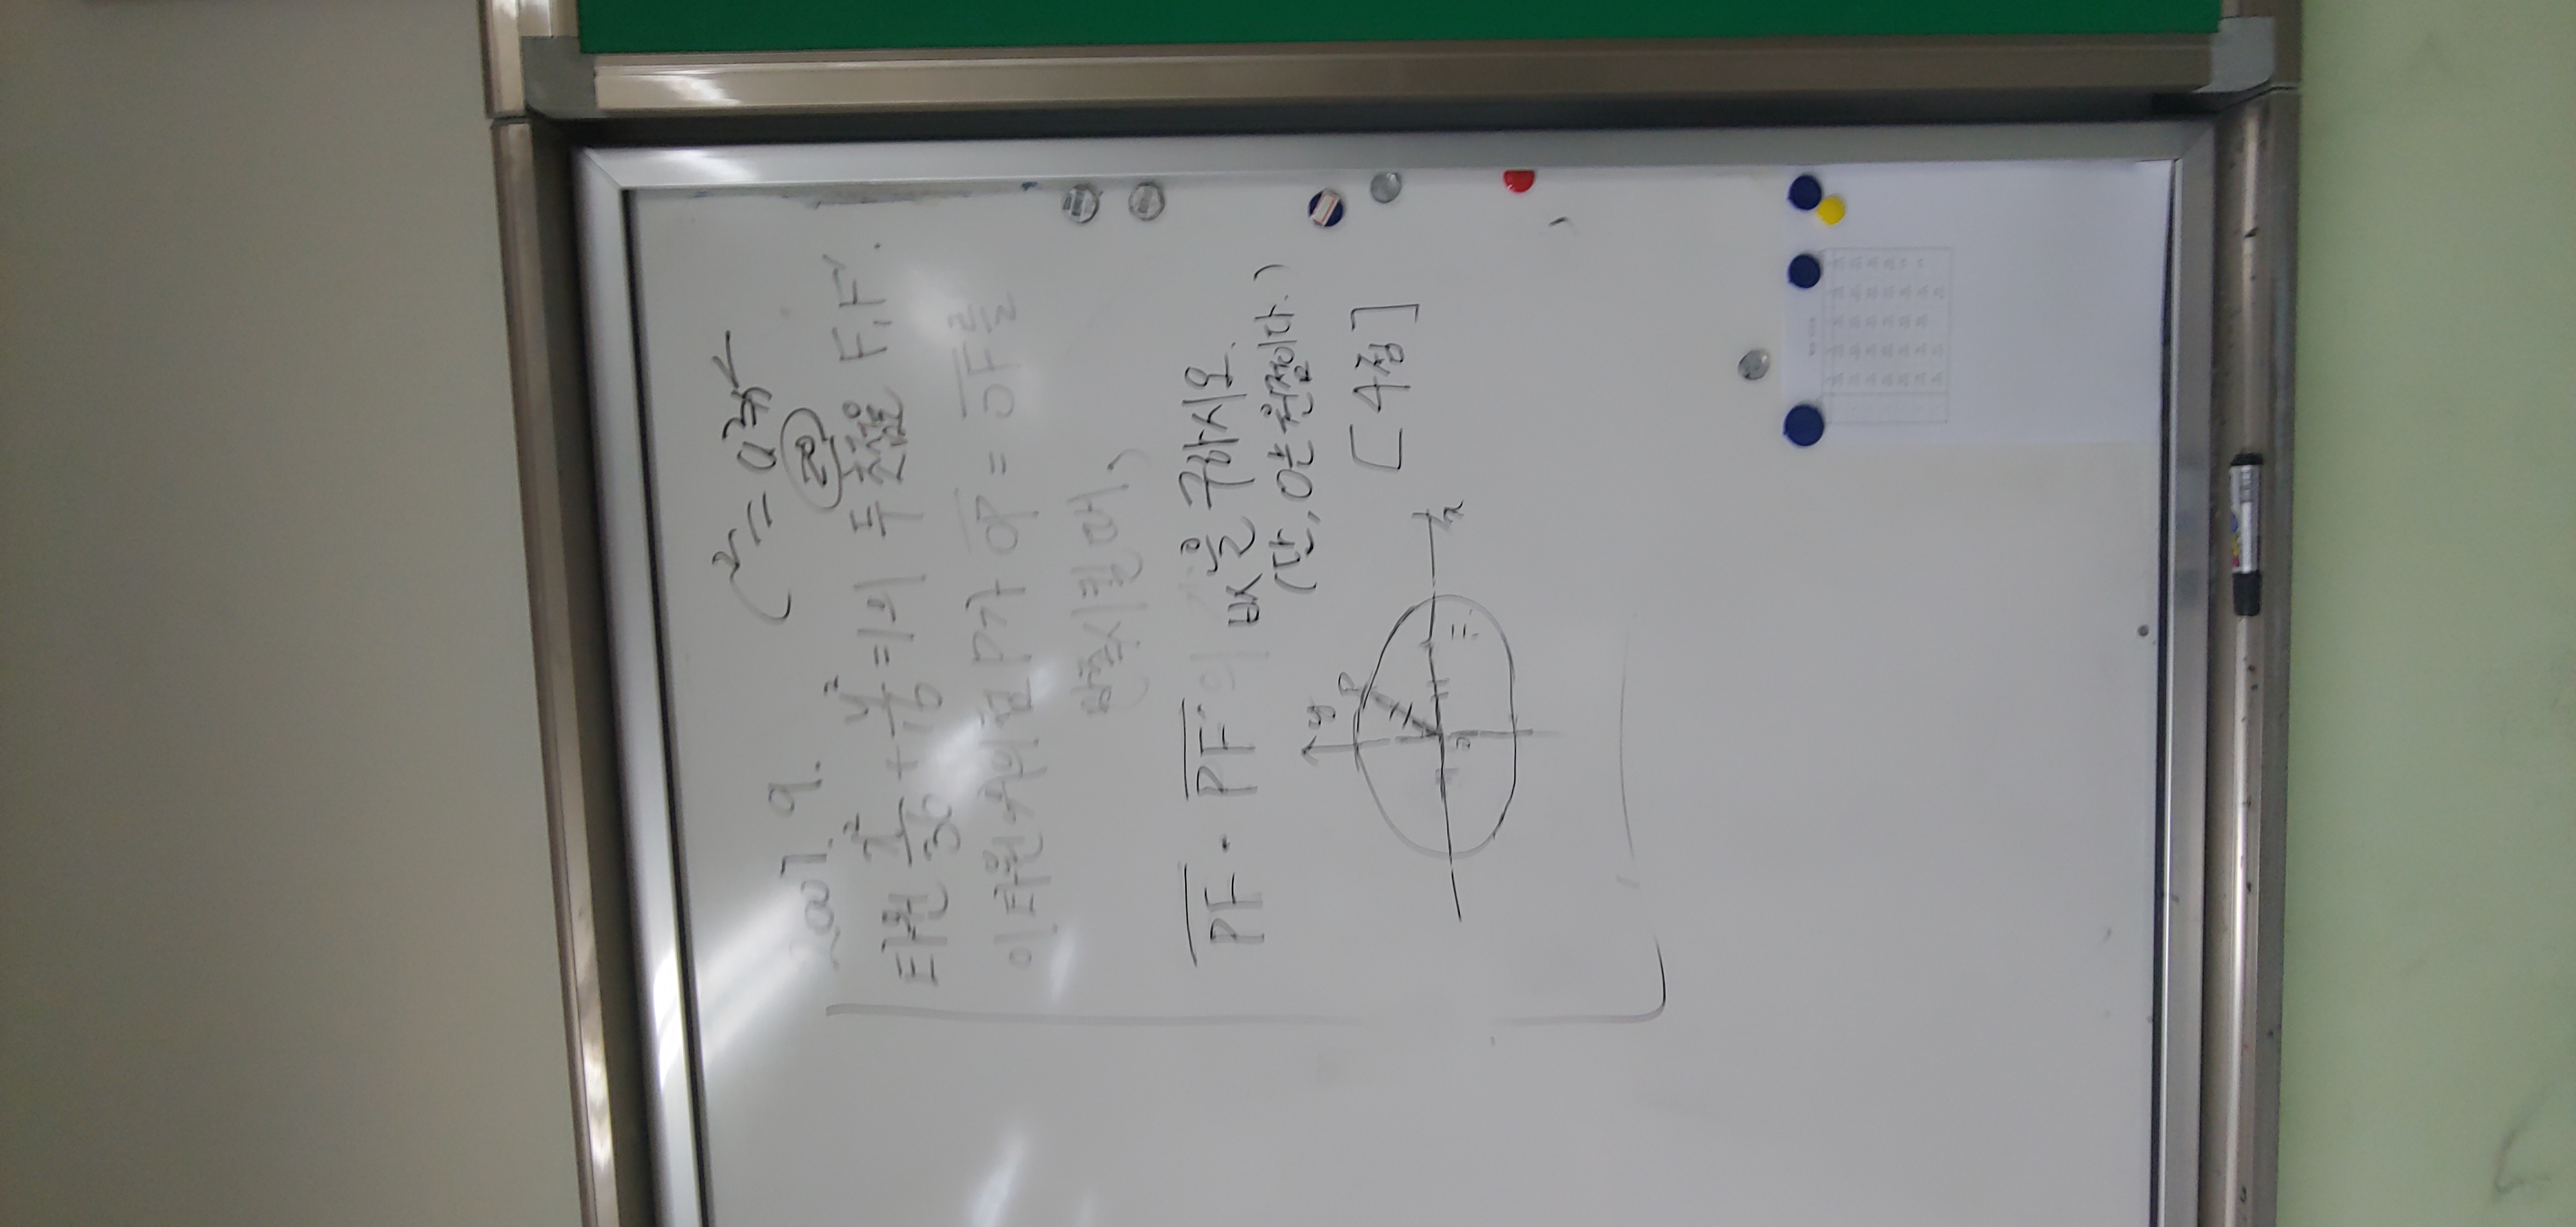 c² = a²-b²
20
2007. 9.
타원 x²/36 + y²/16 = 1의 두 초점을 F, F'.
이 타원 위의 점 P가 OP = OF를
만족시킬 때,
PF · PF'의 값을 구하시오.
(단, O는 원점이다.)
[4점]
y
P
O
F
x